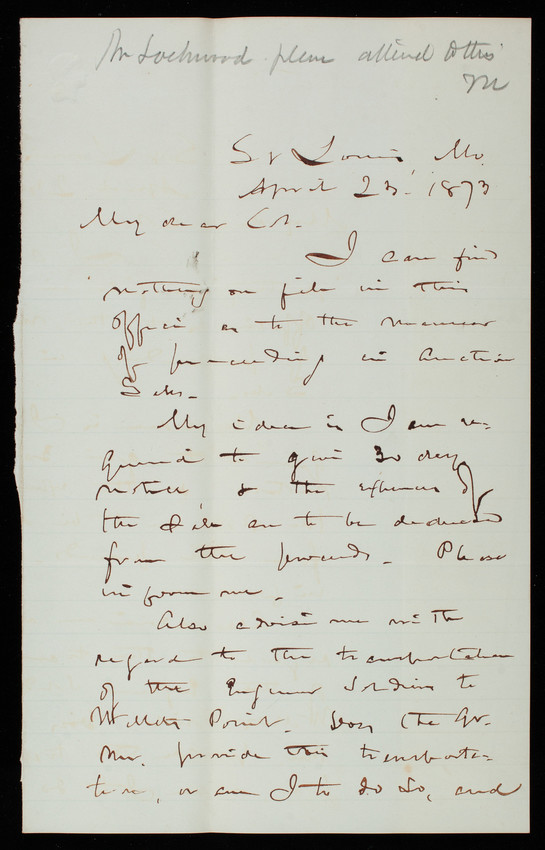 Mr Lockwood please attend to this
M
St Louis, Mo.
April 23. 1873
My dear Col.
I can find
nothing on file in this
office as to the manner
of proceeding in Auction
Sales.
My idea is I am re-
quired to give 30 days
notice, & the expenses of
the Sale are to be deducted
from the proceeds. Please
inform me.
Also advise me with
regard to the transportation
of the Engineer Soldiers to
Willets Point. Does the Qr.
Mr. provide this transporta-
tion, or am I to do so, and